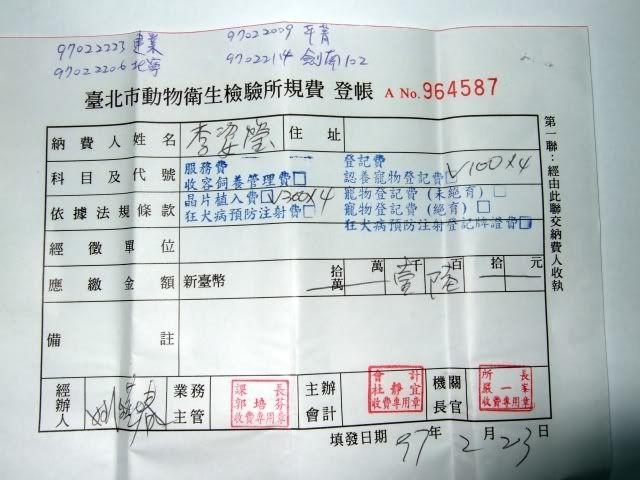 97022223 建業 97022009 平菁
97022206 北寧 97022214 劍南102
臺北市動物衛生檢驗所規費 登帳 A No. 964587
納費人姓名 李姿瑩 住址
科目及代號 服務費 登記費
收容飼養管理費□ 認養寵物登記費 V100×4
依據法規條款 晶片植入費□V300×4 寵物登記費(未絕育)□
狂犬病預防注射費□ 寵物登記費(絕育)□
狂犬病預防注射登記牌證費□
經徵單位
應繳金額 新臺幣 拾萬 萬 壹千 陸百 拾 元
備註
經辦人 業務主管 課長 郭培芬 收費專用章 主辦會計 會計 杜靜宜 收費專用章 機關長官 所長 嚴一峯 收費專用章
填發日期 97年 2月 23日
第一聯:經由此聯交納費人收執